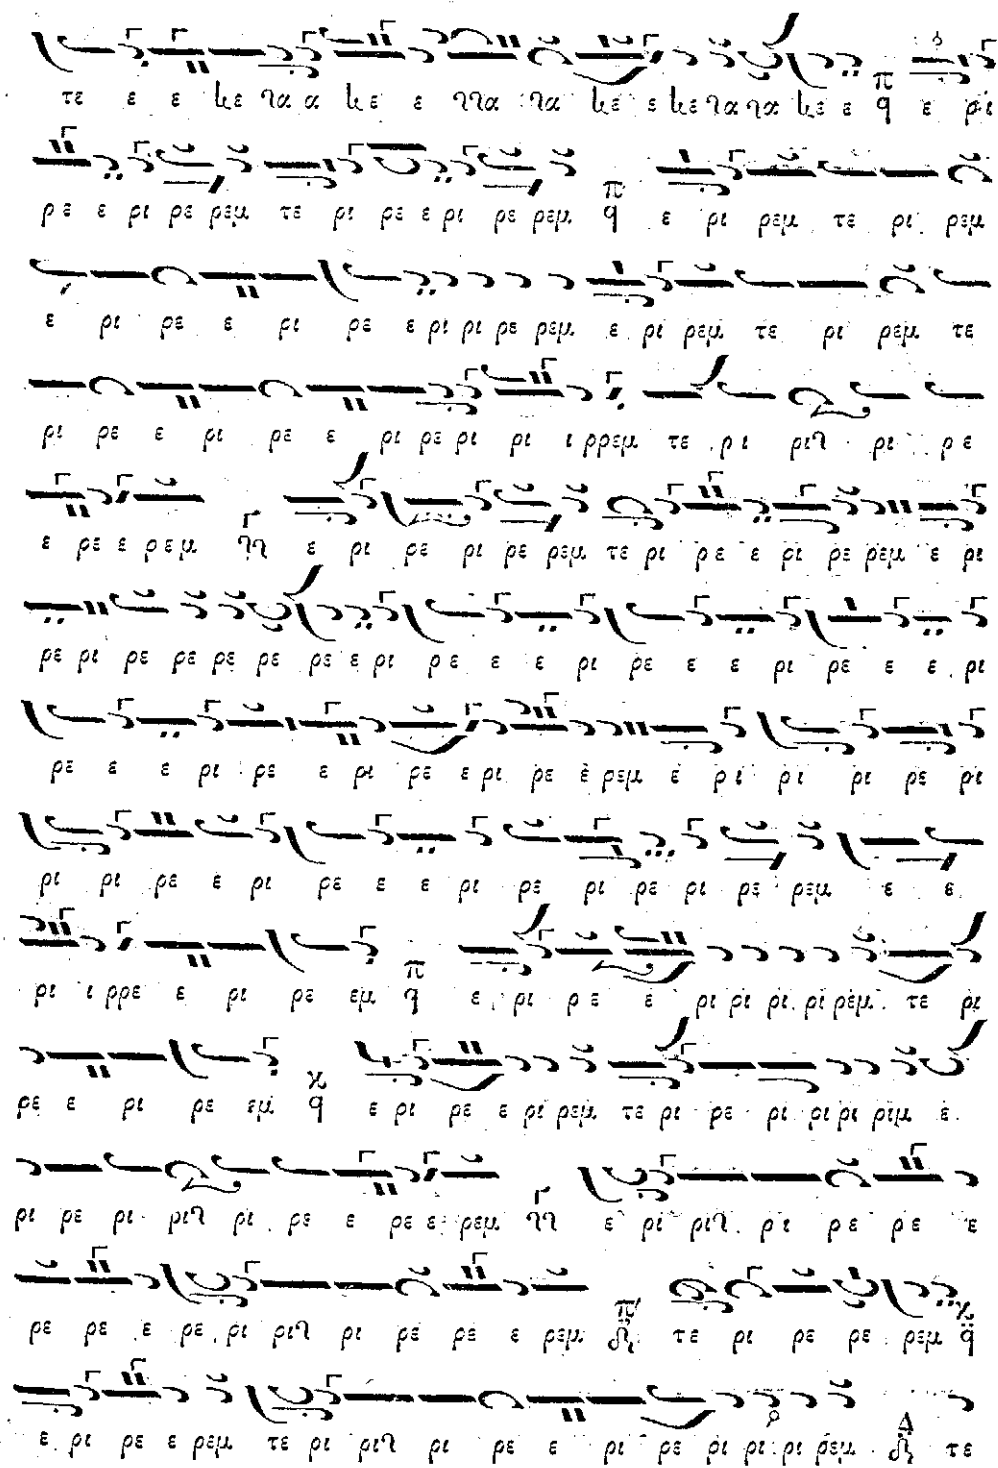 τε ε ε κε γα α κε ε γγα γα κε ε κε γα γα κε ε π q ε ρι
ρε ε ρι ρε ρεμ τε ρι ρε ε ρι ρε ρεμ π q ε ρι ρεμ τε ρι ρεμ
ε ρι ρε ε ρι ρε ε ρι ρι ρε ρεμ ε ρι ρεμ τε ρι ρεμ τε
ρι ρε ε ρι ρε ε ρι ρε ρι ρι ι ρρεμ τε ρι ριγ ρι ρε
ε ρε ε ρεμ Γ γγ ε ρι ρε ρι ρε ρεμ τε ρι ρε ε ρι ρε ρεμ ε ρι
ρε ρι ρε ρε ρε ρε ρε ε ρι ρε ε ε ρι ρε ε ε ρι ρε ε ε ρι
ρε ε ε ρι ρε ε ρι ρε ε ρι ρε ε ρεμ ε ρι ρι ρι ρε ρι
ρι ρι ρε ε ρι ρε ε ε ρι ρε ρι ρε ρι ρε ρεμ ε ε
ρι ι ρρε ε ρι ρε εμ π q ε ρι ρε ε ρι ρι ρι ρι ρεμ τε ρι
ρε ε ρι ρε εμ κ q ε ρι ρε ε ρι ρεμ τε ρι ρε ρι ρι ρι ριμ ε
ρι ρε ρι ριγ ρι ρε ε ρε ε ρεμ Γ γγ ε ρι ριγ ρι ρε ρε ε
ρε ρε ε ρε ρι ριγ ρι ρε ρε ε ρεμ π τε ρι ρε ρε ρεμ κ q
ε ρι ρε ε ρεμ τε ρι ριγ ρι ρε ε ρι ρε ρι ρι ρι ρεμ Δ τε